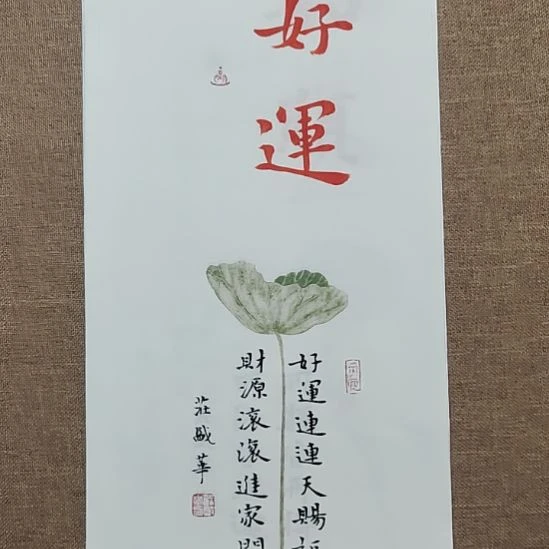 好運
好運連連天賜
財源滾滾進家門
莊
華